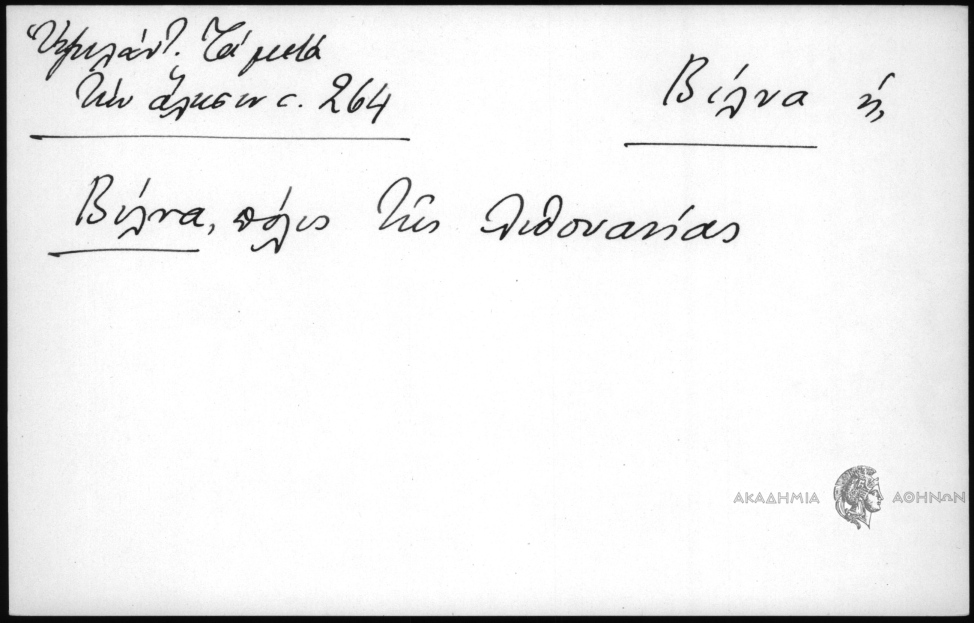 Ὑψηλάντ. Τὰ μετὰ
τὴν ἅλωσιν σ. 264
Βίλνα ἡ,
Βίλνα, πόλις τῆς Λιθουανίας
ΑΚΑΔΗΜΙΑ ΑΘΗΝΩΝ